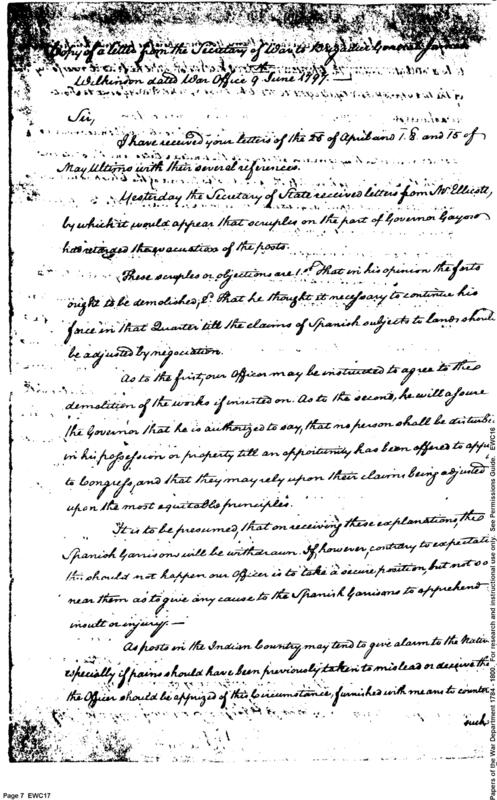 Copy of a letter from the Secretary of War to Brigadier General James
Wilkinson dated War Office 9th June 1797.
Sir,
I have received your letters of the 25 of April and 1. 8. and 15 of
May Ultimo with their several references.
Yesterday the Secretary of State received letters from Mr Ellicott,
by which it would appear that scruples on the part of Governor Gayoso
has retarded the evacuation of the posts.
These scruples or objections are 1st That in his opinion the forts
ought to be demolished; 2d That he thought it necessary to continue his
force in that Quarter till the claims of Spanish subjects to lands should
be adjusted by negociation.
As to the first, our Officer may be instructed to agree to the
demolition of the works if insisted on. As to the second, he will assure
the Governor that he is authorized to say, that no person shall be disturb
in his possession or property till an opportunity has been offered to app
to Congress, and that they may rely upon their claims being adjusted
upon the most equitable principles.
It is to be presumed, that on receiving these explanations, the
Spanish Garrisons will be withdrawn. If, however, contrary to expectati
this should not happen our Officer is to take a secure position, but not so
near them as to give any cause to the Spanish Garrisons to apprehend
insult or injury.—
As posts in the Indian Country may tend to give alarm to the Nativ
especially if pains should have been previously taken to mislead or deceive the
the Officer should be apprized of this Circumstance, furnished with means to counter
such
Page 7 EWC17
Papers of the War Department 1784 - 1800. For research and instructional use only. See Permissions Guide. EWC16